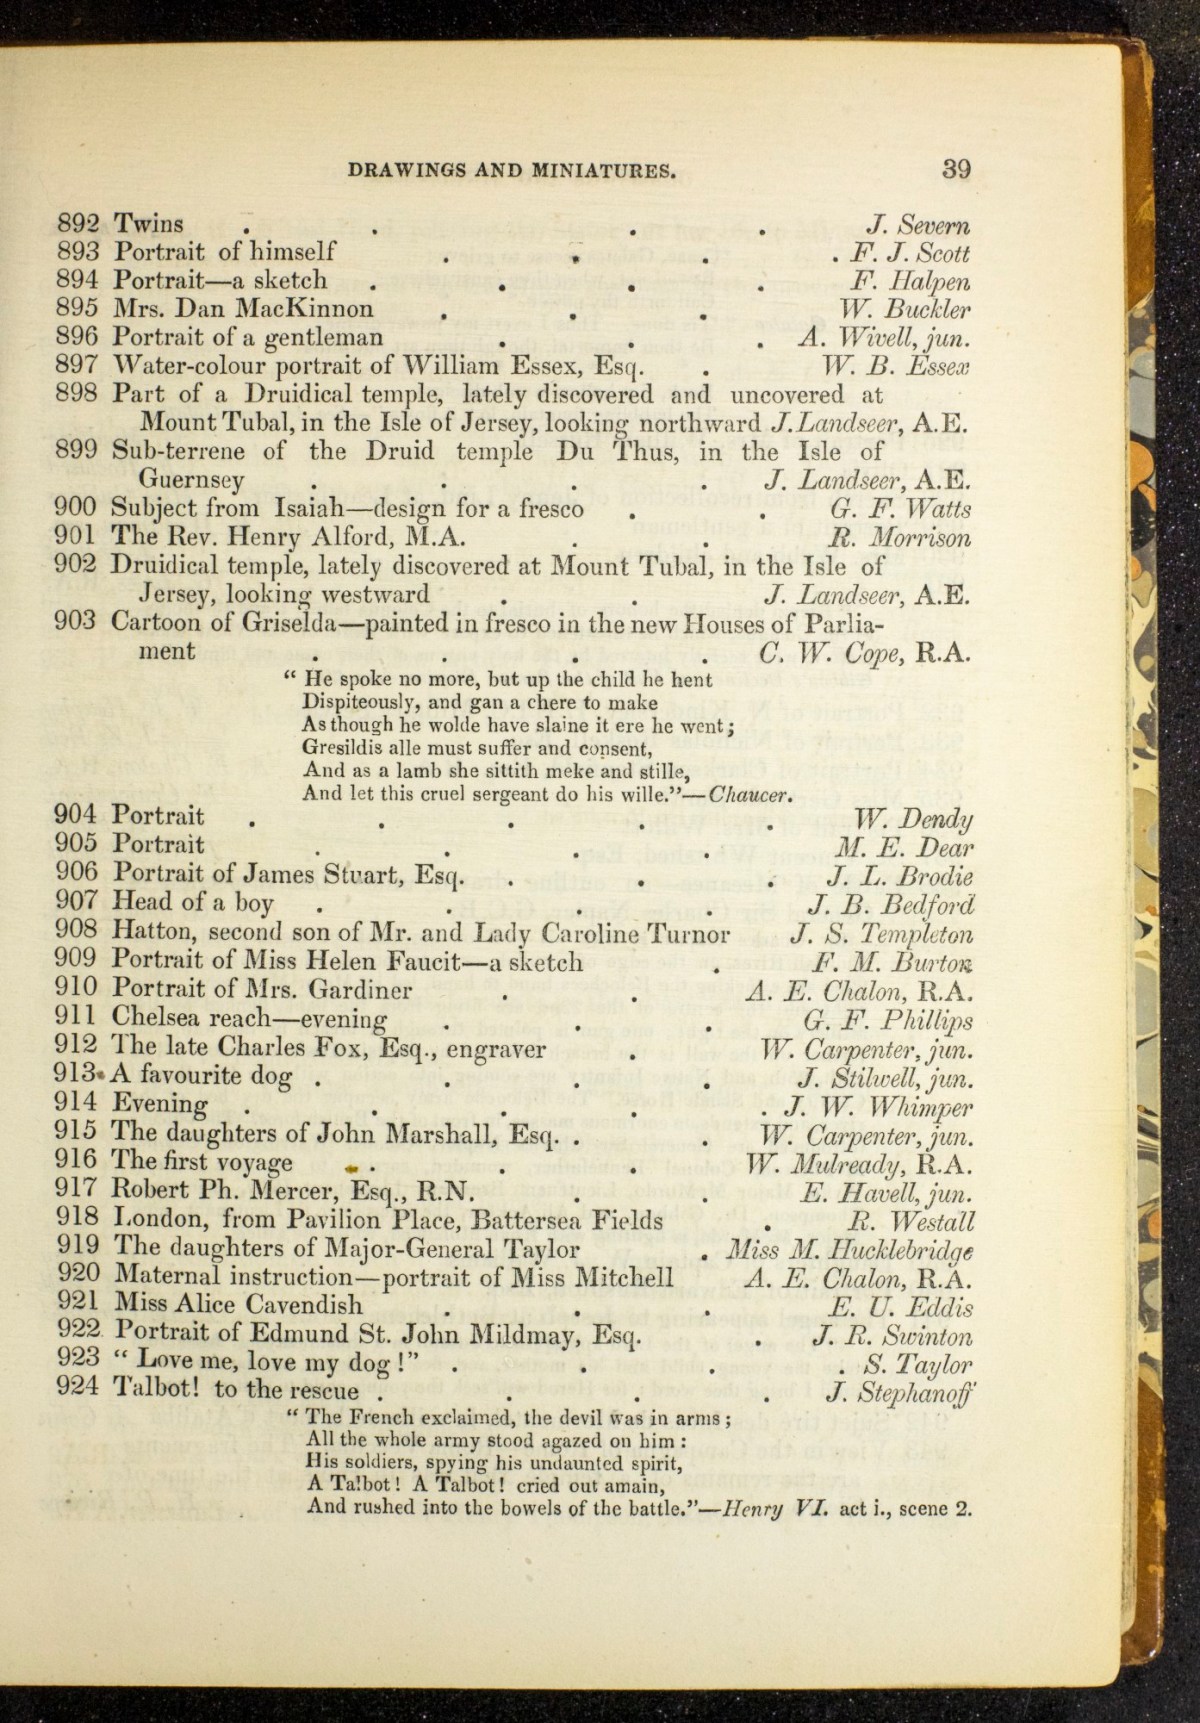 DRAWINGS AND MINIATURES. 39
892 Twins . . . . J. Severn
893 Portrait of himself . . . . F. J. Scott
894 Portrait—a sketch . . . . F. Halpen
895 Mrs. Dan MacKinnon . . . W. Buckler
896 Portrait of a gentleman . . . A. Wivell, jun.
897 Water-colour portrait of William Essex, Esq. . W. B. Essex
898 Part of a Druidical temple, lately discovered and uncovered at
Mount Tubal, in the Isle of Jersey, looking northward J. Landseer, A.E.
899 Sub-terrene of the Druid temple Du Thus, in the Isle of
Guernsey . . . . J. Landseer, A.E.
900 Subject from Isaiah—design for a fresco . . G. F. Watts
901 The Rev. Henry Alford, M.A. . . R. Morrison
902 Druidical temple, lately discovered at Mount Tubal, in the Isle of
Jersey, looking westward . . J. Landseer, A.E.
903 Cartoon of Griselda—painted in fresco in the new Houses of Parlia-
ment . . . . C. W. Cope, R.A.
“ He spoke no more, but up the child he hent
Dispiteously, and gan a chere to make
As though he wolde have slaine it ere he went;
Gresildis alle must suffer and consent,
And as a lamb she sittith meke and stille,
And let this cruel sergeant do his wille.”—Chaucer.
904 Portrait . . . . . W. Dendy
905 Portrait . . . . M. E. Dear
906 Portrait of James Stuart, Esq. . . . J. L. Brodie
907 Head of a boy . . . . J. B. Bedford
908 Hatton, second son of Mr. and Lady Caroline Turnor J. S. Templeton
909 Portrait of Miss Helen Faucit—a sketch . F. M. Burton
910 Portrait of Mrs. Gardiner . . A. E. Chalon, R.A.
911 Chelsea reach—evening . . . G. F. Phillips
912 The late Charles Fox, Esq., engraver . W. Carpenter, jun.
913 A favourite dog . . . . J. Stilwell, jun.
914 Evening . . . . . J. W. Whimper
915 The daughters of John Marshall, Esq. . . W. Carpenter, jun.
916 The first voyage . . . W. Mulready, R.A.
917 Robert Ph. Mercer, Esq., R.N. . . E. Havell, jun.
918 London, from Pavilion Place, Battersea Fields . R. Westall
919 The daughters of Major-General Taylor . Miss M. Hucklebridge
920 Maternal instruction—portrait of Miss Mitchell A. E. Chalon, R.A.
921 Miss Alice Cavendish . . . E. U. Eddis
922 Portrait of Edmund St. John Mildmay, Esq. . J. R. Swinton
923 “ Love me, love my dog !” . . . . S. Taylor
924 Talbot! to the rescue . . . . J. Stephanoff
“ The French exclaimed, the devil was in arms ;
All the whole army stood agazed on him :
His soldiers, spying his undaunted spirit,
A Talbot ! A Talbot ! cried out amain,
And rushed into the bowels of the battle.”—Henry VI. act i., scene 2.